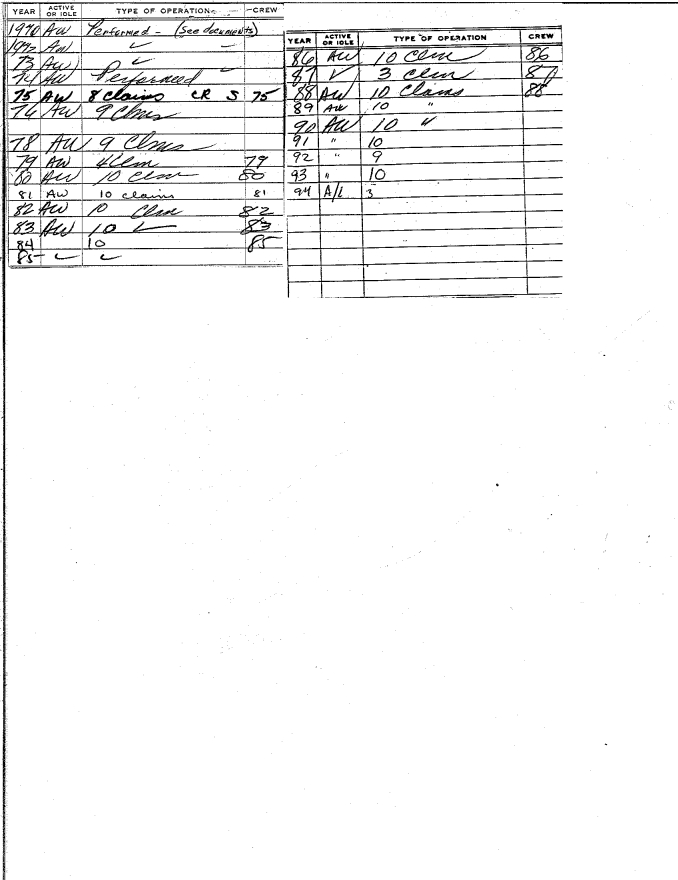 YEAR ACTIVE OR IDLE TYPE OF OPERATION CREW
1970 AW Performed - (see documents)
1972 AW ✓ -
73 AW ✓
74 AW Performed ✓
75 AW 8 claims CR S 75
76 AW 9 Clms
78 AW 9 Clms
79 AW 4 Clm 79
80 AW 10 Clm 80
81 AW 10 claims 81
82 AW 10 Clm 82
83 AW 10 ✓ 83
84 10 85
85 ✓ ✓
YEAR ACTIVE OR IDLE TYPE OF OPERATION CREW
86 AW 10 Clm 86
87 ✓ 3 Clm 87
88 AW 10 Claims 88
89 AW 10 "
90 AW 10 "
91 " 10
92 " 9
93 " 10
94 A/L 3